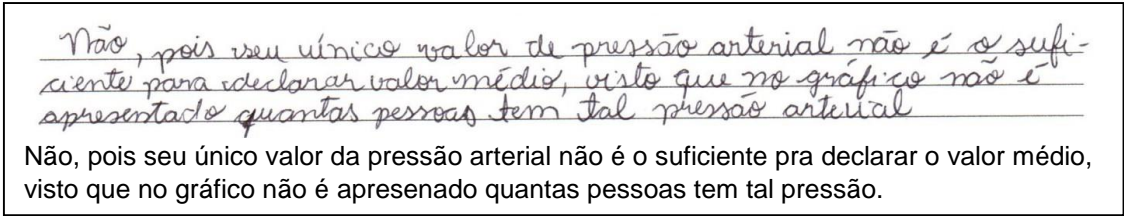 Não, pois seu único valor de pressão arterial não é o sufi-
ciente para declarar valor médio, visto que no gráfico não é
apresentado quantas pessoas tem tal pressão arterial
Não, pois seu único valor da pressão arterial não é o suficiente pra declarar o valor médio,
visto que no gráfico não é apresenado quantas pessoas tem tal pressão.